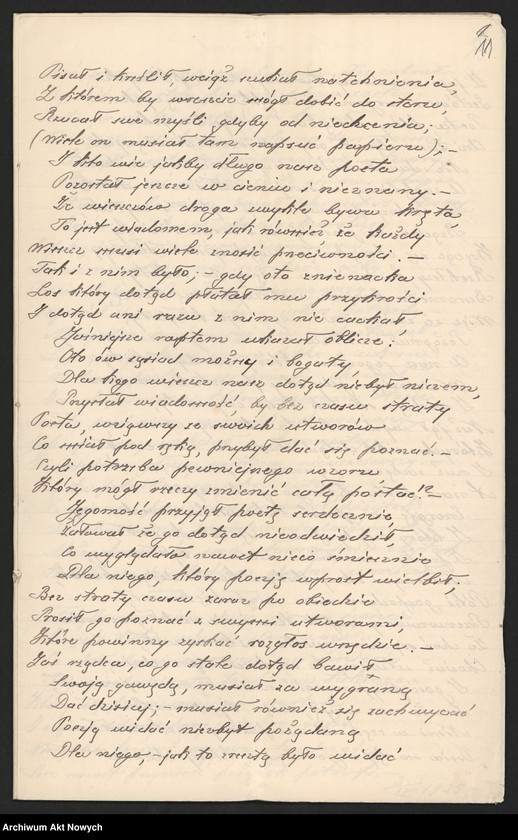 11
Pisał i kreślił, wciąż szukał natchnienia,
Z którem by wreszcie mógł dobić do steru,
Rzucał swe myśli gdyby od niechcenia;
(Wiele on musiał tam napsuć papieru);—
I kto wie jakby długo nasz poeta
Pozostał jeszcze w cieniu i nieznany.—
Że wieszczów droga zwykle bywa kręta,
To jest wiadomem, jak również że każdy
Wieszcz musi wiele znosić przeciwności.—
Tak i z nim było;— gdy oto znienacka
Los który dotąd płatał mu przykrości
I dotąd ani razu z nim nie cackał
Jaśniejsze raptem ukazał oblicze:
Oto ów sąsiad możny i bogaty,
Dla kogo wieszcz nasz dotąd niebył niczem,
Przysłał wiadomość, by bez czasu straty
Poeta, wziąwszy ze swoich utworów
Co miał pod ręką, przybył dać się poznać.—
Czyli potrzeba pewnijnego wzoru
Który mógł rzeczy zmienić całą postać!?—
Jegomość przyjął poetę serdecznie
Żałował że go dotąd nieodwiedził,
Co wyglądało nawet nieco śmiesznie
Dla niego, który poezję wprost wielbił;
Bez straty czasu zaraz po obiedzie
Prosił go poznać z swymi utworami,
Które powinny zyskać rozgłos wszędzie.—
Jaś rządca, co go stale dotąd bawił
Swoją gawędą, musiał za wygraną
Dać dzisiaj;— musiał również się zachwycać
Poezją widać niezbyt pożądaną
Dla niego,— jak to zresztą było widać
Archiwum Akt Nowych